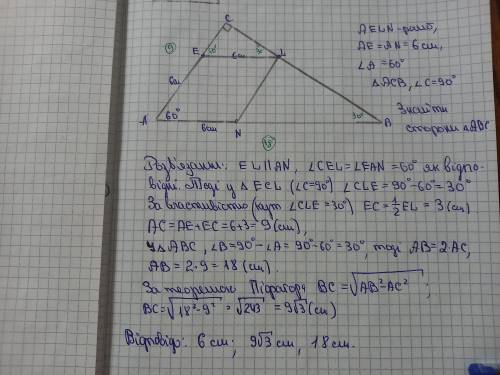 C
AELN - ромб,
AE = AN = 6 см,
∠A = 60°
△ACB, ∠C = 90°
Знайти
сторони △ABC
9
E
60°
6 см
30°
L
6 см
A
60°
6 см
N
30°
B
18
Розв'язання: EL||AN, ∠CEL = ∠EAN = 60° як відпо-
відні. Тоді у △ECL (∠C=90°) ∠CLE = 90°-60° = 30°
За властивістю (кут ∠CLE = 30°) EC = 1/2 EL = 3 (см)
AC = AE + EC = 6+3 = 9 (см),
У △ABC, ∠B = 90°-∠A = 90°-60° = 30°, тоді AB = 2·AC,
AB = 2·9 = 18 (см).
За теоремою Піфагора BC = √AB²-AC² ;
BC = √18²-9² = √243 = 9√3 (см)
Відповідь: 6 см; 9√3 см, 18 см.